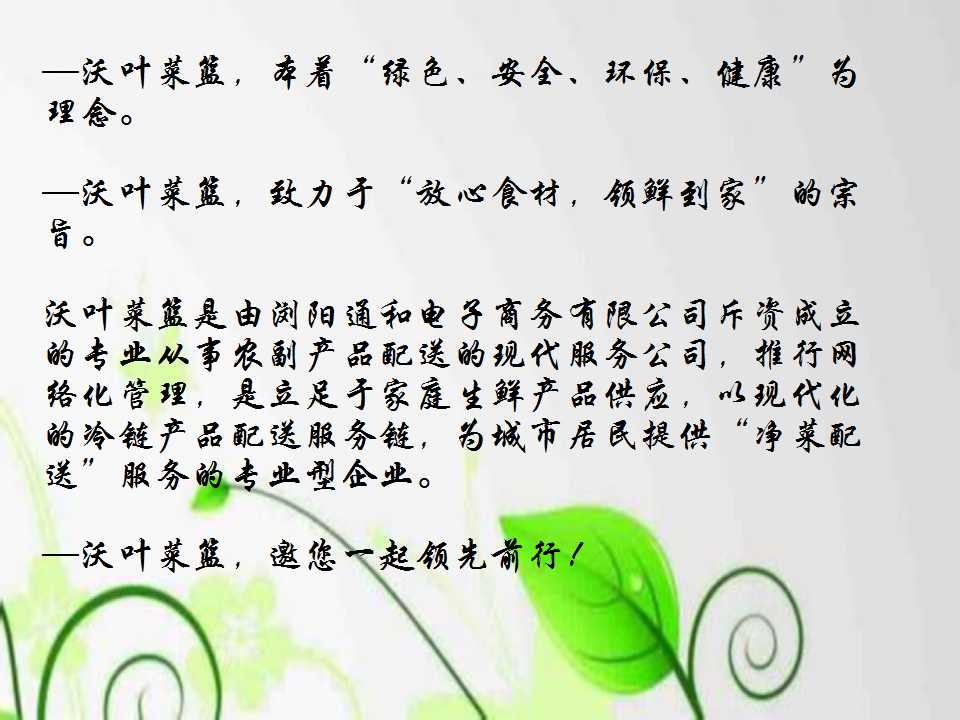 —沃叶菜篮，本着“绿色、安全、环保、健康”为
理念。
—沃叶菜篮，致力于“放心食材，领鲜到家”的宗
旨。
沃叶菜篮是由浏阳通和电子商务有限公司斥资成立
的专业从事农副产品配送的现代服务公司，推行网
络化管理，是立足于家庭生鲜产品供应，以现代化
的冷链产品配送服务链，为城市居民提供“净菜配
送”服务的专业型企业。
—沃叶菜篮，邀您一起领先前行！